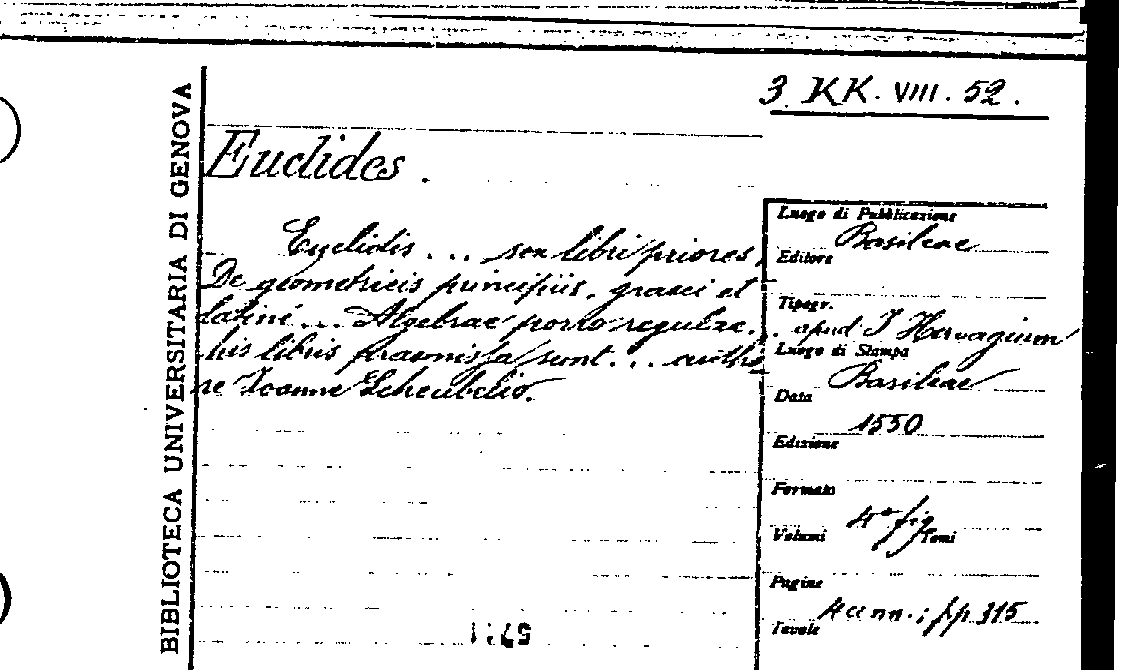 3 KK. VIII. 52.
BIBLIOTECA UNIVERSITARIA DI GENOVA
Euclides.
Euclidis ... sex libri priores,
De geometricis principiis, graeci et
latini ... Algebrae porro regulae...
his libris praemissa sunt... autho
re Ioanne Scheubelio.
Luogo di Pubblicazione
Basileae
Editore
Tipogr.
apud J Hervagium
Luogo di Stampa
Basileae
Data
1550
Edizione
Formato
4° fig
Volumi Tomi
Pagine
4 cnn.; pp 315
Tavole